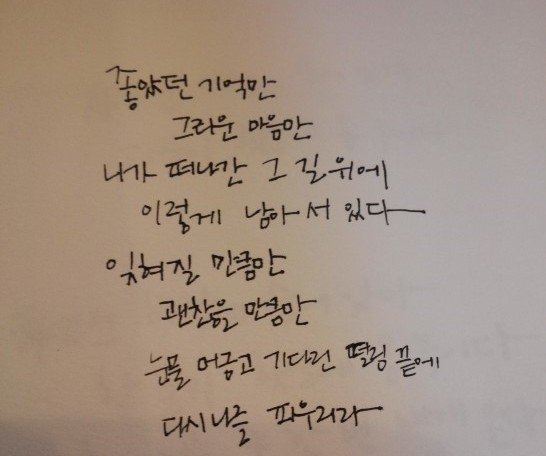 좋았던 기억만
그리운 마음만
니가 떠나간 그 길 위에
이렇게 남아 서 있다
잊혀질 만큼만
괜찮을 만큼만
눈물 머금고 기다린 떨림 끝에
다시 나를 피우리라